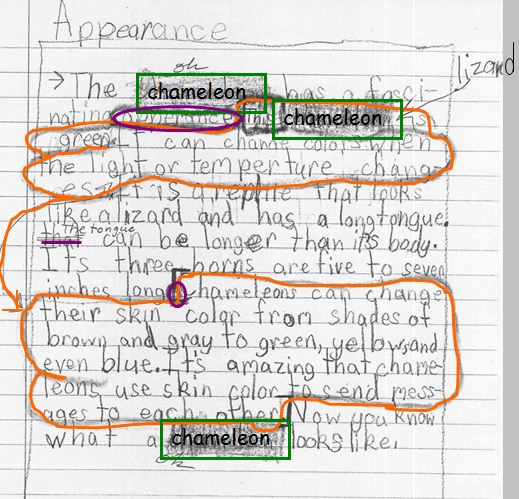 Appearance
ok
lizard
→ The chameleon has a fasci-
nating appearance. This chameleon is
green. It can change colors when
the light or temperture chang-
es. It is a reptile that looks
like a lizard and has a long tongue.
the tongue
that can be longer than its body.
Its three horns are five to seven
inches long. chameleons can change
their skin color from shades of
brown and gray to green, yellowsand
even blue. It's amazing that chame-
leons use skin color to send mess-
ages to each other. Now you know
what a chameleon looks like.
ok